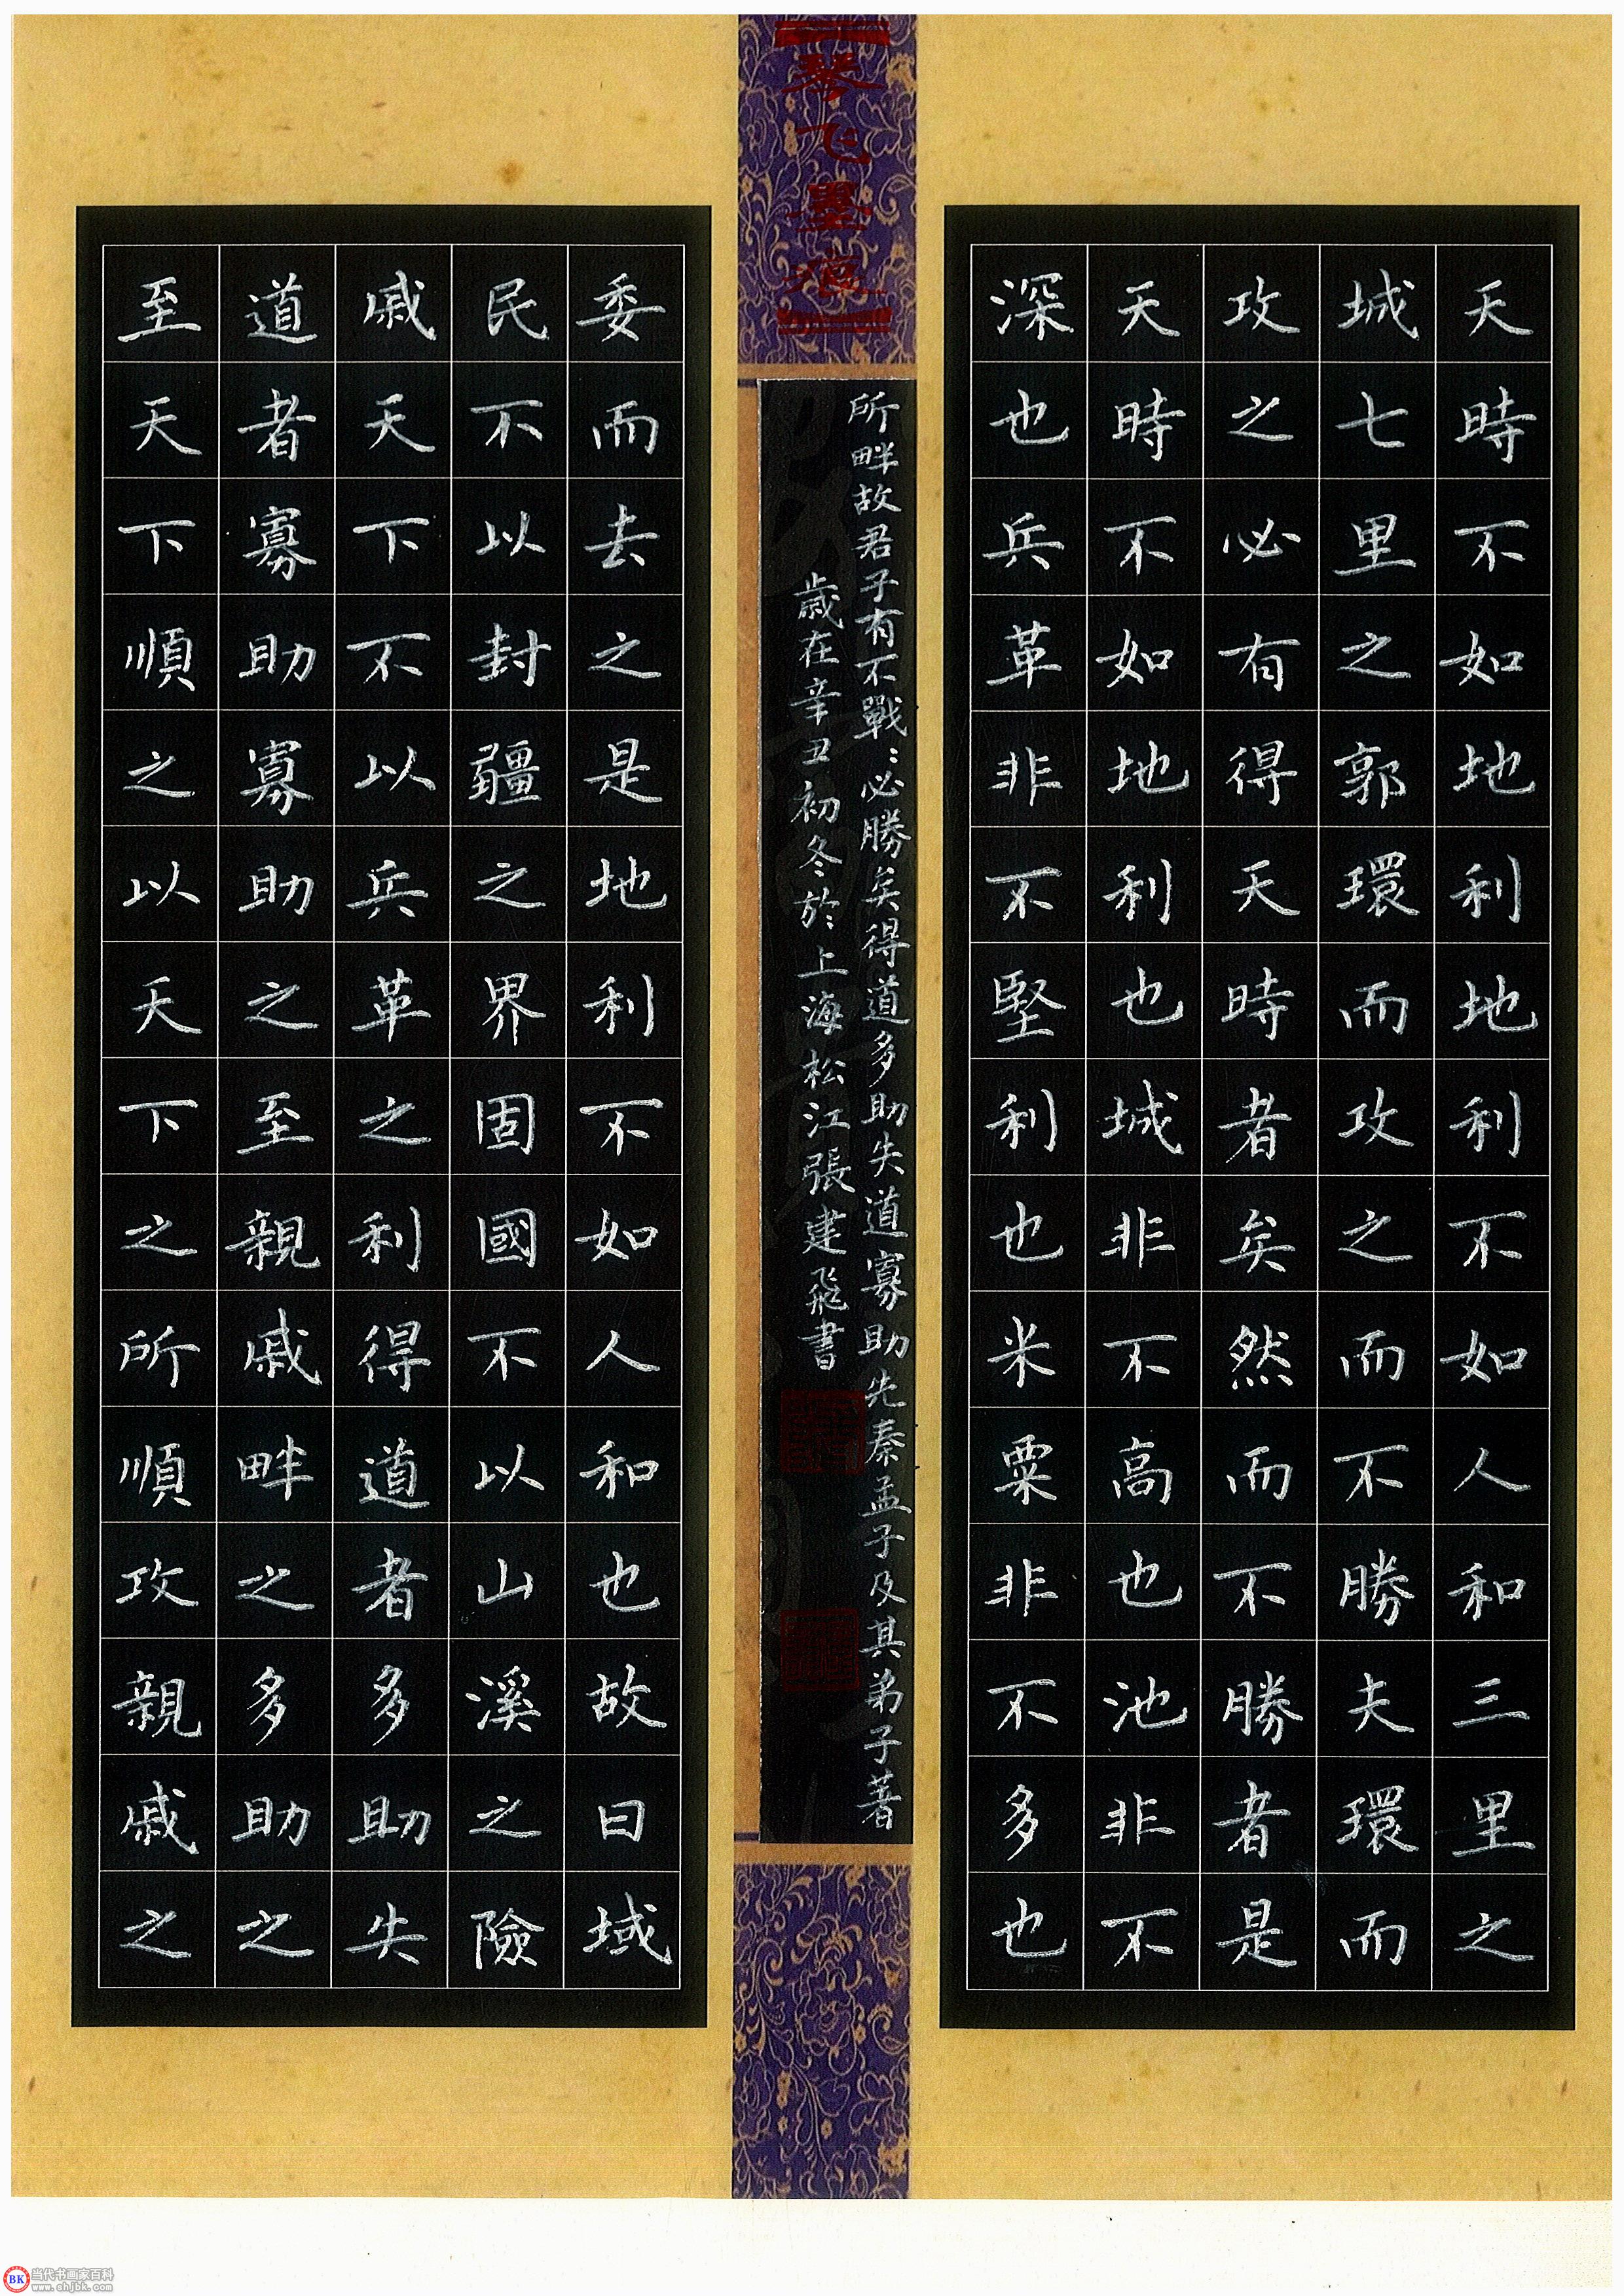 天時不如地利地利不如人和三里之
城七里之郭環而攻之而不勝夫環而
攻之必有得天時者矣然而不勝者是
天時不如地利也城非不高也池非不
深也兵革非不堅利也米粟非不多也
委而去之是地利不如人和也故曰域
民不以封疆之界固國不以山溪之險
戚天下不以兵革之利得道者多助失
道者寡助寡助之至親戚畔之多助之
至天下順之以天下之所順攻親戚之
琴飞墨痕
所畔故君子有不戰〻必勝矣得道多助失道寡助先秦孟子及其弟子著
歲在辛丑初冬於上海松江張建飛書
BK 当代书画家百科
www.shjbk.com